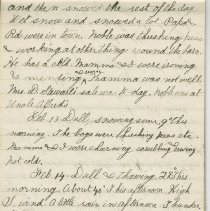 and then snowed the rest of the day.
W'd snow and snowed a lot.
Rd. were in town. Noble was threshing peas
& working at other thing round the barn.
He has a cold. Mamma & I were ironing
& mending & Mamma was not well.
Mrs D Stewarts sale was to day. Noble was at
Uncle Alfreds.
Feb. 13 Dull, snowing some, 9° this
morning. The boys were threshing peas etc.
Mamma & I were churning scrubbing sewing.
Not cold.
Feb. 14 Dull & thawing, 28° this
morning. About 40° this afternoon. High
S. wind a little rain in afternoon. Thunder